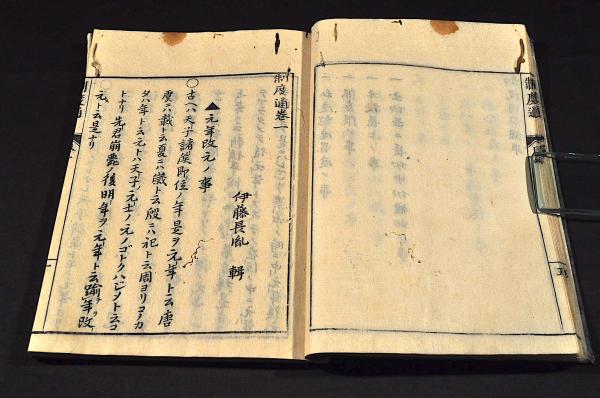 制度通
制度通巻一
伊藤長胤 輯
▲元年改元ノ事
○古ヘハ天子諸侯即位ノ年是ヲ元年ト云唐
虞ニハ載ト云夏ニハ歳ト云殷ニハ祀ト云周ヨリコノカ
タハ年ト云元トハ天子ノ元士ノ元ノゴトクハジメト云コ
トナリ先君崩薨ノ後明年ヲ元年ト云踰年改
元ト云是ナリ
制度通